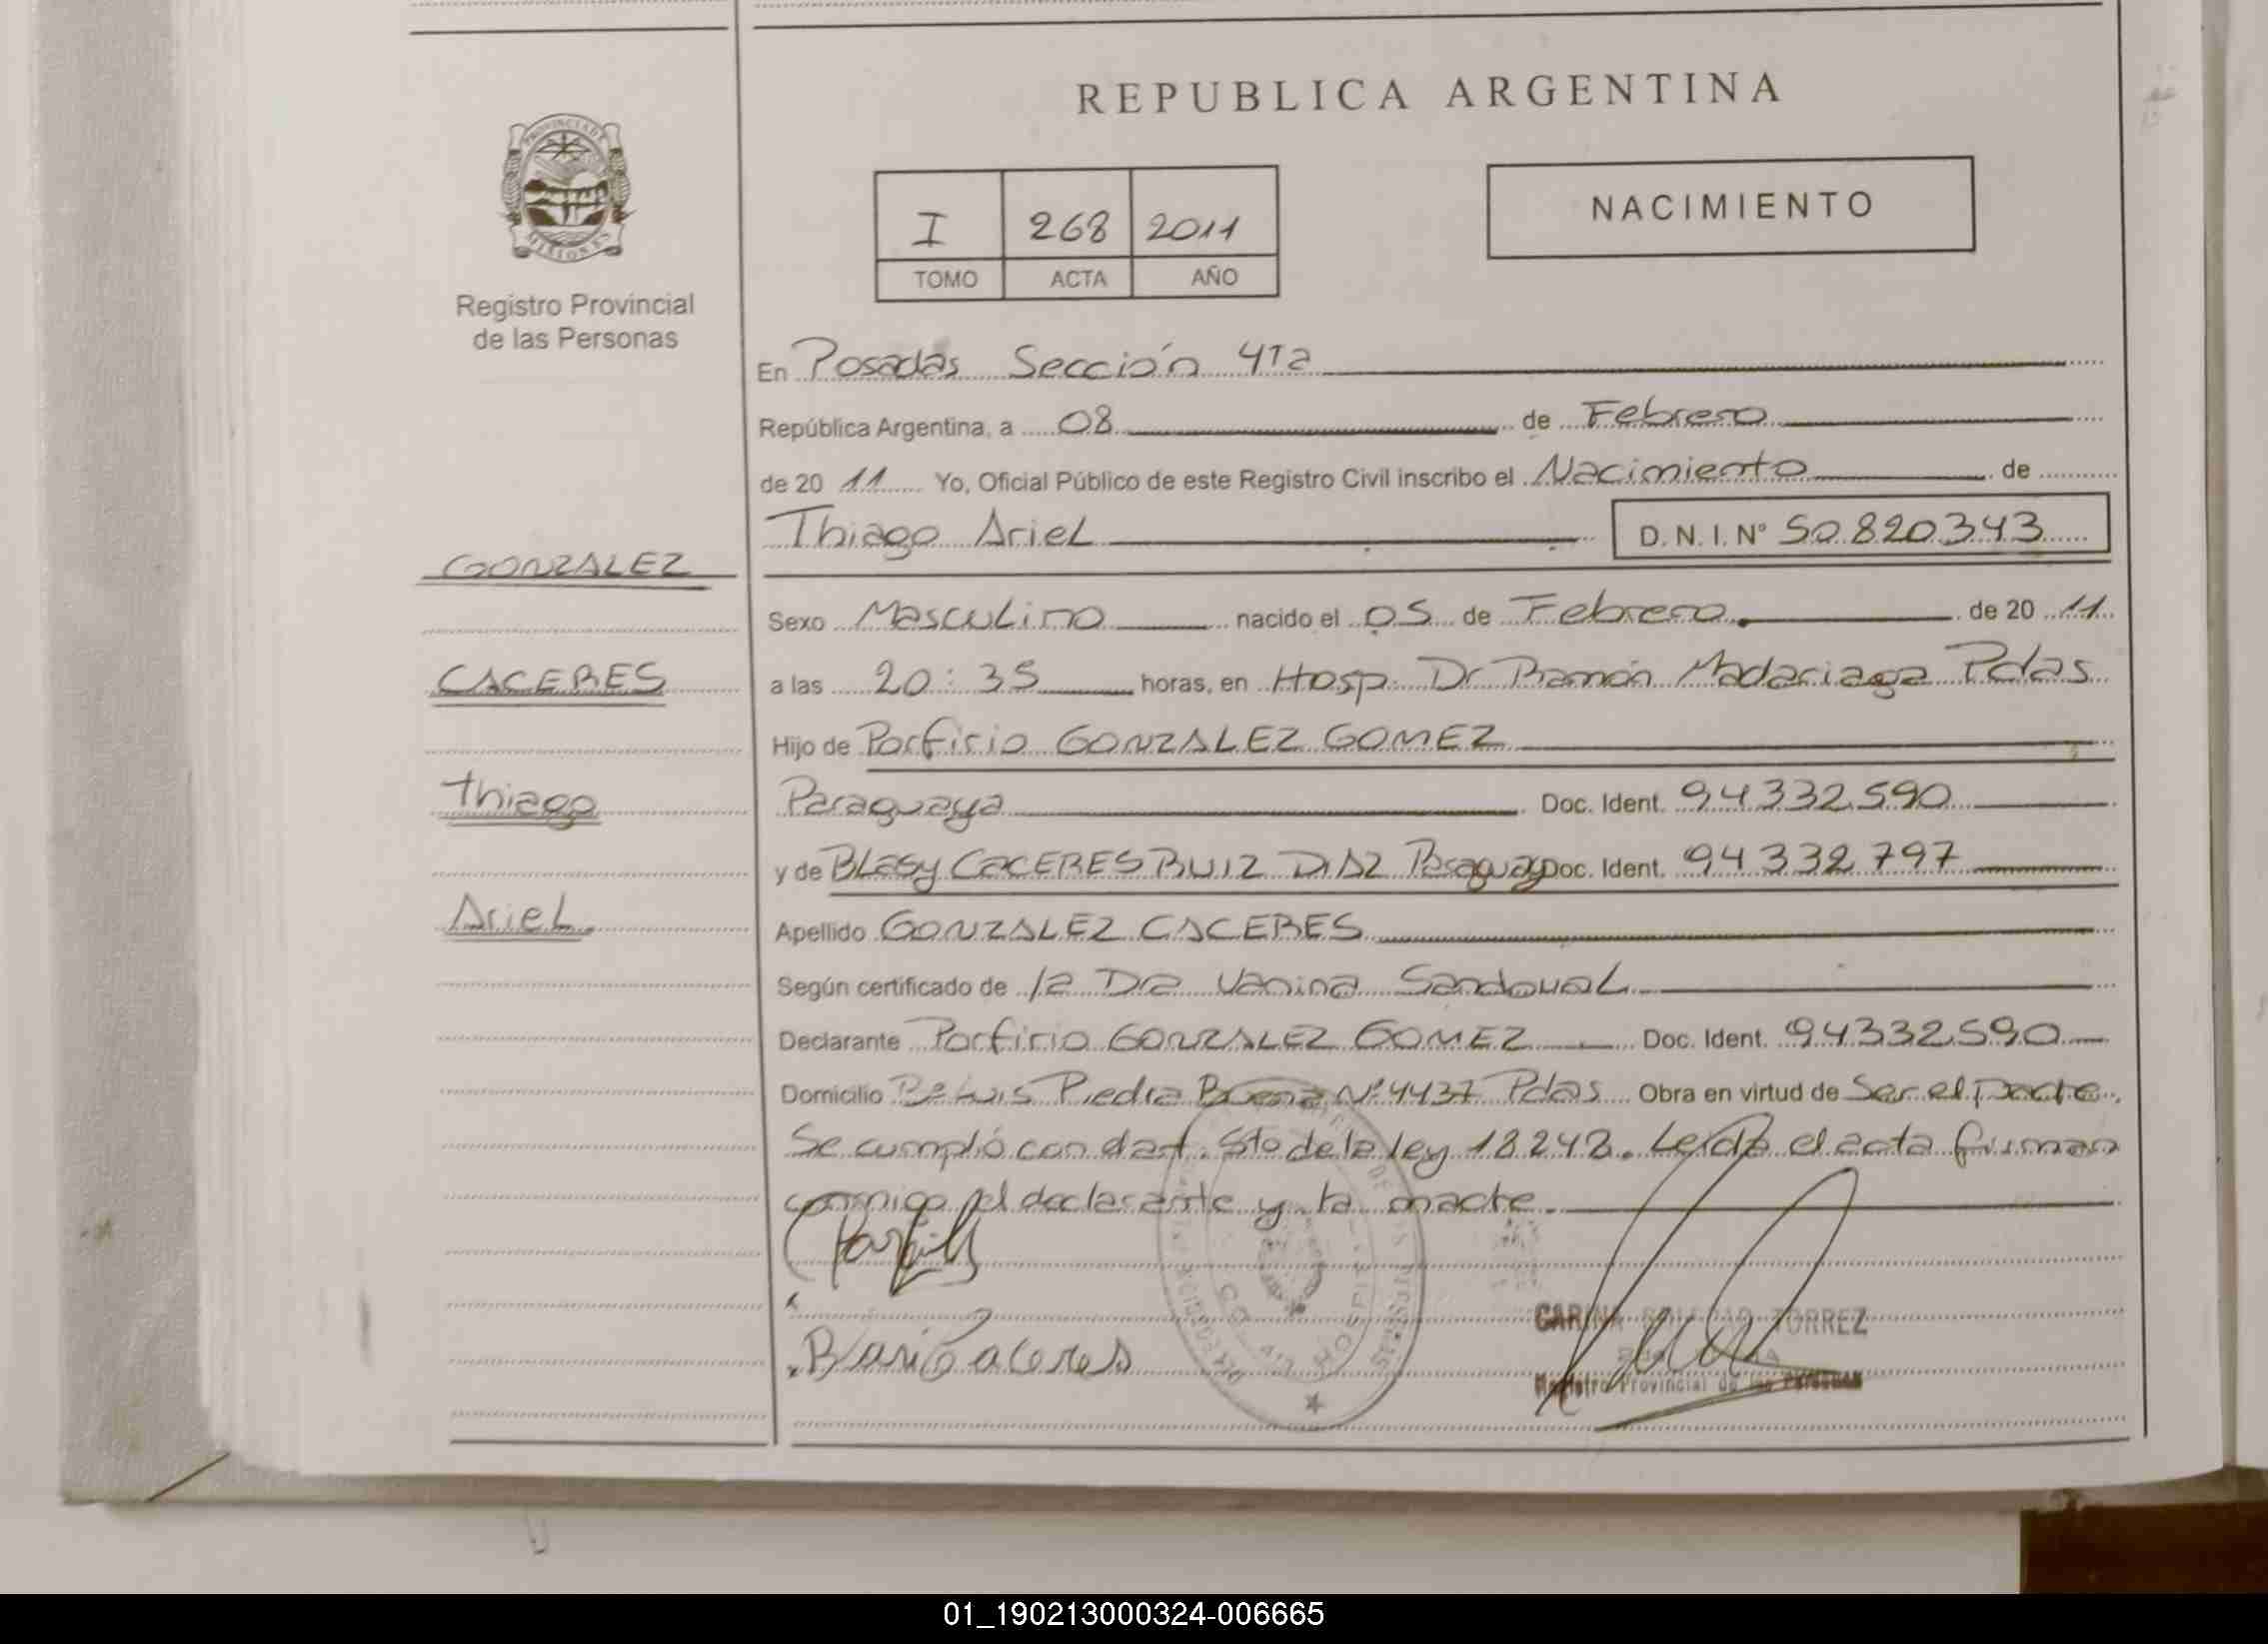 REPUBLICA ARGENTINA
PROVINCIA DE
MISIONES
Registro Provincial
de las Personas
I 268 2011
TOMO ACTA AÑO
NACIMIENTO
En Posadas Sección 4ta
República Argentina, a 08 de Febrero
de 20 11 Yo, Oficial Público de este Registro Civil inscribo el Nacimiento de
Thiago Ariel D.N.I. Nº 50.820.343
GONZALEZ
Sexo Masculino nacido el 05 de Febrero de 20 11
CACERES
a las 20:35 horas, en Hosp. Dr Ramón Madariaga Pdas
Hijo de Porfirio GONZALEZ GOMEZ
Thiago
Paraguaya Doc. Ident. 94332590
y de BLasy CaCERES RUIZ DIAZ Paraguay Doc. Ident. 94332797
Ariel
Apellido GONZALEZ CACERES
Según certificado de la Dra Vanina Sandoval
Declarante Porfirio GONZALEZ GOMEZ Doc. Ident. 94332590
Domicilio Bº Luis Piedra Buena Nº 4437 Pdas Obra en virtud de Ser el padre.
Se cumplió con el art. 5to de la ley 18248. Leída el acta firman
conmigo el declarante y la madre.
Caceres
CARINA SOLEDAD TORREZ
Registro Provincial de las Personas
01_190213000324-006665